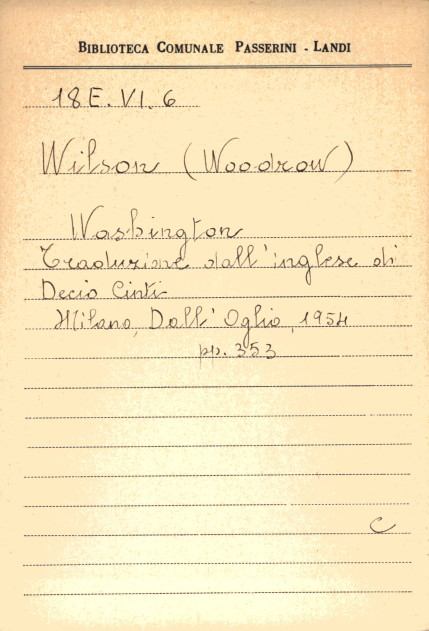 BIBLIOTECA COMUNALE PASSERINI - LANDI
18 E. VI. 6
Wilson (Woodrow)
Washington
Traduzione dall'inglese di
Decio Cinti
Milano, Dall'Oglio, 1954
pp. 353
C